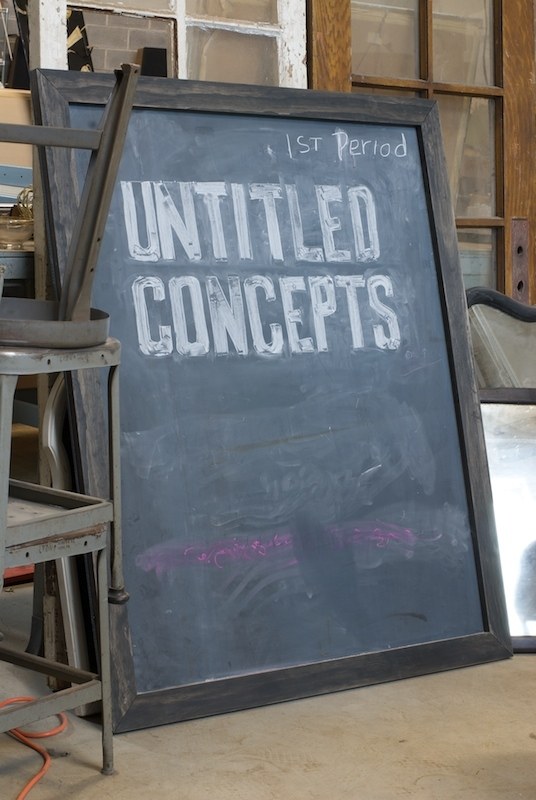 1ST Period
UNTITLED
CONCEPTS